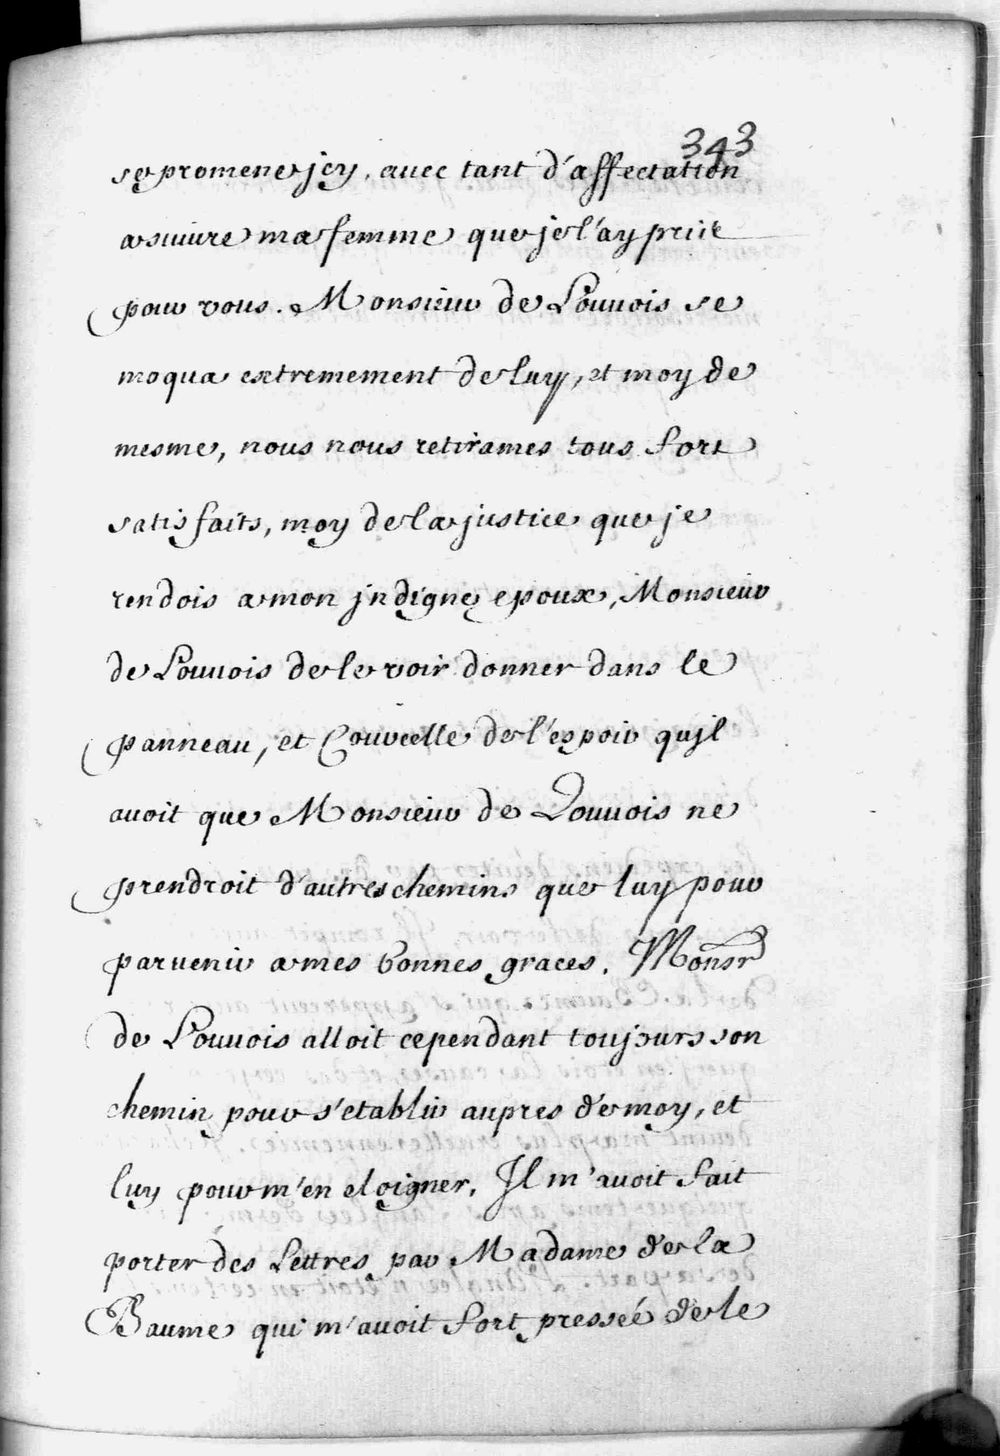 343
se promene jcy, avec tant d'affectation
a suiure ma femme que je l'ay prise
pour vous. Monsieur de Louuois se
moqua extremement de luy, et moy de
mesme, nous nous retirames tous fort
satisfaits, moy de la justice que je
rendois a mon jndigne epoux, Monsieur
de Louuois de le voir donner dans le
panneau, et Courcelle de l'espoir qujl
auoit que Monsieur de Louuois ne
prendroit d'autres chemins que luy pour
paruenir a mes bonnes graces. Monsr
de Louuois alloit cependant toujours son
chemin pour s'etablir aupres de moy, et
luy pour m'en eloigner, Jl m'auoit fait
porter des Lettres par Madame de la
Baume qui m'avoit fort pressée de le